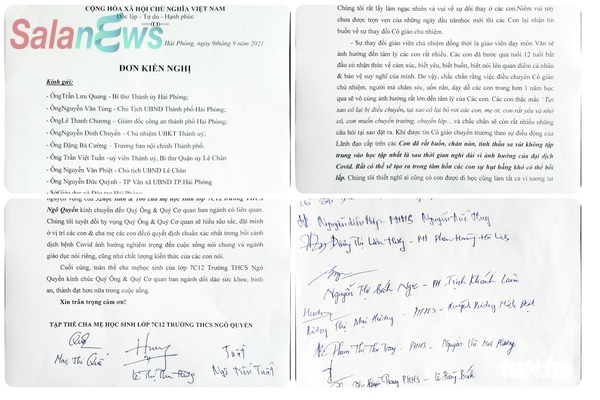 CỘNG HÒA XÃ HỘI CHỦ NGHĨA VIỆT NAM
Độc lập - Tự do - Hạnh phúc
SalaNews
Hải Phòng, ngày 9 tháng 9 năm 2021
ĐƠN KIẾN NGHỊ
Kính gửi:
- Ông Trần Lưu Quang - Bí thư Thành ủy Hải Phòng;
- Ông Nguyễn Văn Tùng - Chủ Tịch UBND Thành phố Hải Phòng;
- Ông Lê Thanh Chương – Giám đốc công an thành phố Hải Phòng;
- Ông Nguyễn Đình Chuyến – Chủ nhiệm UBKT Thành ủy;
- Ông Đặng Bá Cường – Trưởng ban nội chính Thành phố.
- Ông Trần Việt Tuấn – uỷ viên Thành ủy, Bí thư Quận ủy Lê Chân
- Ông Nguyễn Văn Phiệt - Chủ tịch UBND Lê Chân
- Ông Nguyễn Đức Quỳnh - TP Văn xã UBND TP.Hải Phòng
- Sở Giáo dục và Đào tạo Hải Phòng
Chúng tôi rất lấy làm ngạc nhiên và vui đó cũng sẻ ở các Con.Niềm vui này
chưa được trọn vẹn của những ngày đầu nămhọc mới thì các Con lại nhận tin
buồn về sự thay đổi Cô giáo chủ nhiệm.
- Sự thay đổi giáo viên chủ nhiệm đồng thời là giáo viên dạy môn Văn sẽ
ảnh hưởng đến tâm lý các con rất nhiều. Các con đã bước qua tuổi 12 tuổi bắt
đầu có nhận thức về cảm xúc, biết yêu, biết buồn, biết nói lên quan điểm cá nhân
& bảo vệ suy nghĩ của mình. Do vậy, chắc chắn rằng việc điều chuyển Cô giáo
chủ nhiệm, người mà chăm sóc, uốn nắn, dạy dỗ các con trong hơn 1 năm học
qua sẽ vô cùng ảnh hưởng rất lớn đến tâm lý của Các con. Các con thắc mắc "Tại
sao cô lại bị điều chuyển, tại sao cô lại bỏ rơi các con, mẹ ơi, con rất yêu và nhớ
cô, con muốn chuyển trường, chuyển lớp....và chắc chắn sẽ có rất nhiều những
câu hỏi tại sao đặt ra. Khi được tin Cô giáo chuyển trường theo sự điều động của
Lãnh đạo cấp trên các Con đã rất buồn, chán nản, tinh thần sa sút không tập
trung vào học tập nhất là sau thời gian nghỉ dài vì ảnh hưởng của đại dịch
Covid. Rất có thể sẽ tạo ra trong tâm hồn các con sự hụt hẫng khó có thể bồi
lấp. Chúng tôi thiết nghĩ ai cũng có con được đi học cũng làm tất cả vì tương lai
nguyện vọng của 52học sinh & 104 cha mẹ học sinh lớp 7C12 Trường THCS
Ngô Quyền kính chuyển đến Quý Ông & Quý Cơ quan ban ngành có liên quan.
Chúng tôi tuyệt đối hy vọng Quý Ông & Quý Cơ quan sẽ hiểu sâu sắc, đặt mình
ở vị trí các con & cha mẹ các con để có quyết định chuẩn xác nhất trong bối cảnh
dịch bệnh Covid ảnh hưởng nghiêm trọng đến cuộc sống nói chung và ngành
giáo dục nói riêng, cũng như chất lượng kiến thức của các con.
Cuối cùng, toàn thể cha mẹhọc sinh của lớp 7C12 Trường THCS Ngô
Quyền kính chúc Quý Ông & Quý Cơ quan ban ngành dồi dào sức khoẻ, bình
an, thành đạt hơn nữa trong cuộc sống.
Xin trân trọng cảm ơn!
TẬP THỂ CHA MẸ HỌC SINH LỚP 7C12 TRƯỜNG THCS NGÔ QUYỀN
Mạc Thị Quế
Lê Thị Thu Hằng
Tuất
PHHS
Nguyễn Thị Bích Ngọc - PH Trịnh Khánh Lâm
PHHS
Phạm Thị Thu Trang - PHHS